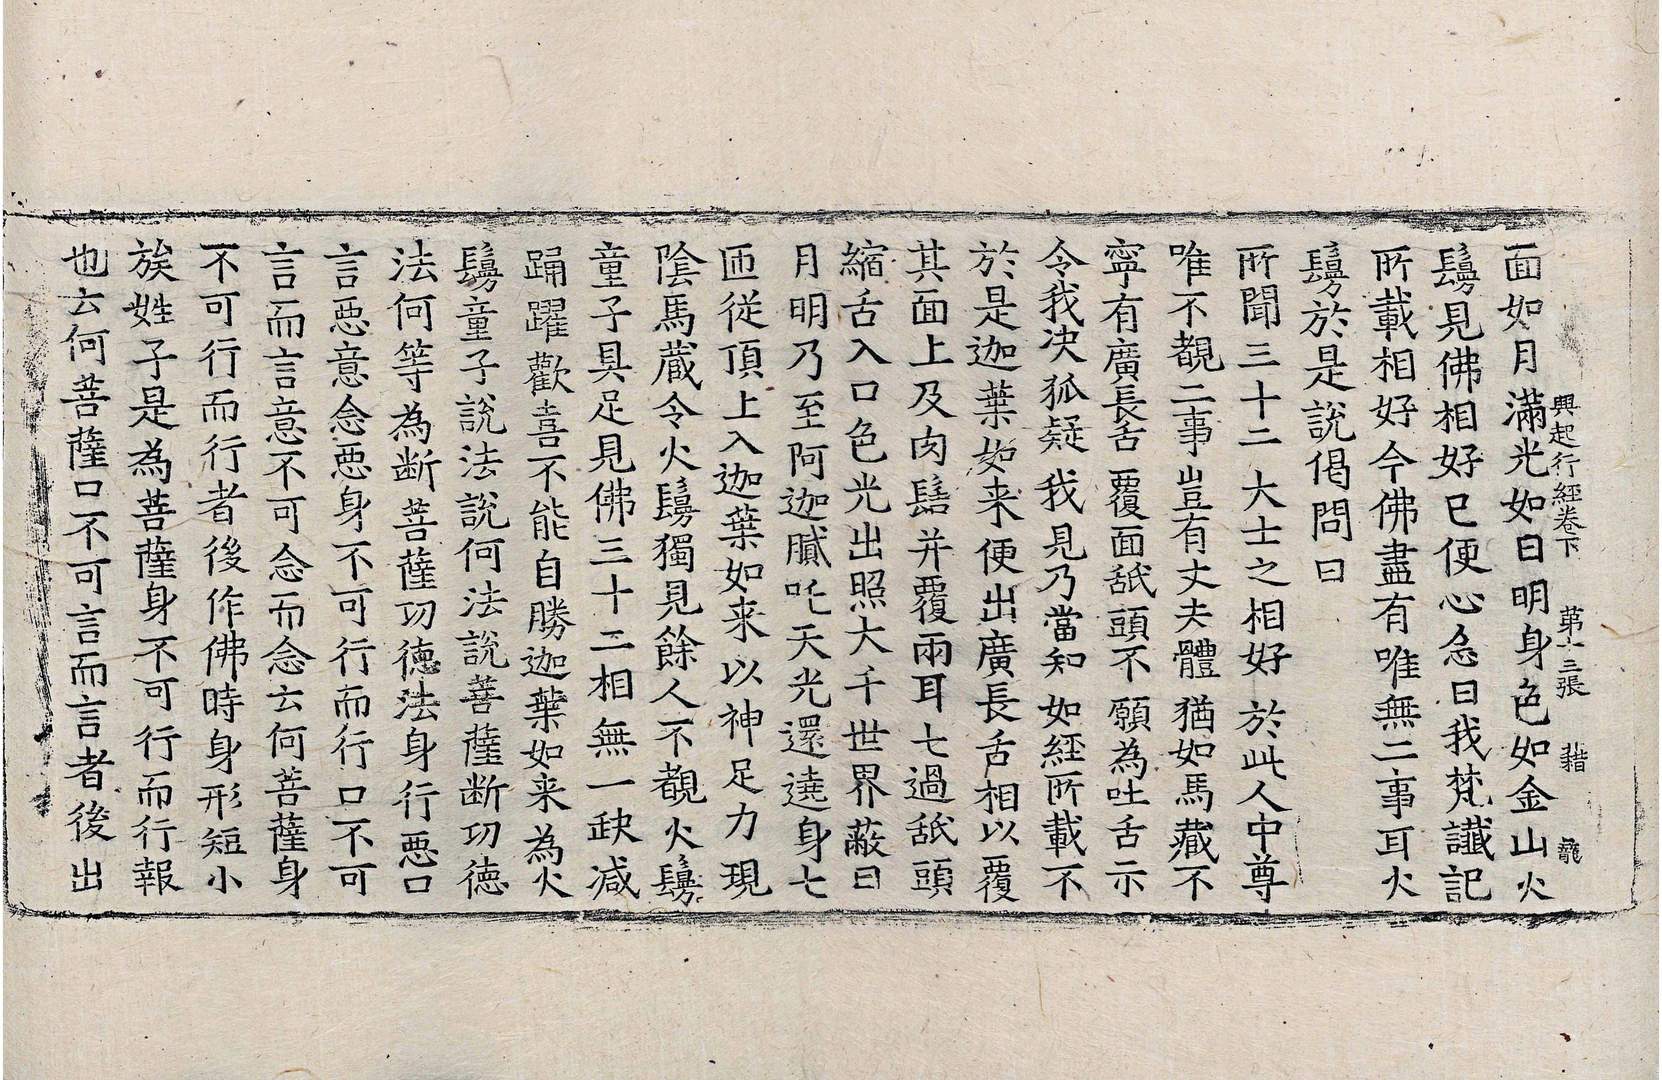 興起行經卷下 第十三張 𦻏 龍
面如月滿光如日明身色如金山火
鬘見佛相好已便心念曰我梵讖記
所載相好今佛盡有唯無二事耳火
鬘於是說偈問曰
所聞三十二 大士之相好 於此人中尊
唯不覩二事 豈有丈夫體 猶如馬藏不
寧有廣長舌 覆面舐頭不 願為吐舌示
令我決狐疑 我見乃當知 如經所載不
於是迦葉如来便出廣長舌相以覆
其面上及肉髻并覆兩耳七過舐頭
縮舌入口色光出照大千世界蔽日
月明乃至阿迦膩吒天光還遶身七
匝從頂上入迦葉如来以神足力現
陰馬藏令火鬘獨見餘人不覩火鬘
童子具足見佛三十二相無一缺減
踊躍歡喜不能自勝迦葉如来為火
鬘童子說法說何法說菩薩斷功德
法何等為斷菩薩功德法身行惡口
言惡意念惡身不可行而行口不可
言而言意不可念而念云何菩薩身
不可行而行者後作佛時身形短小
族姓子是為菩薩身不可行而行報
也云何菩薩口不可言而言者後出